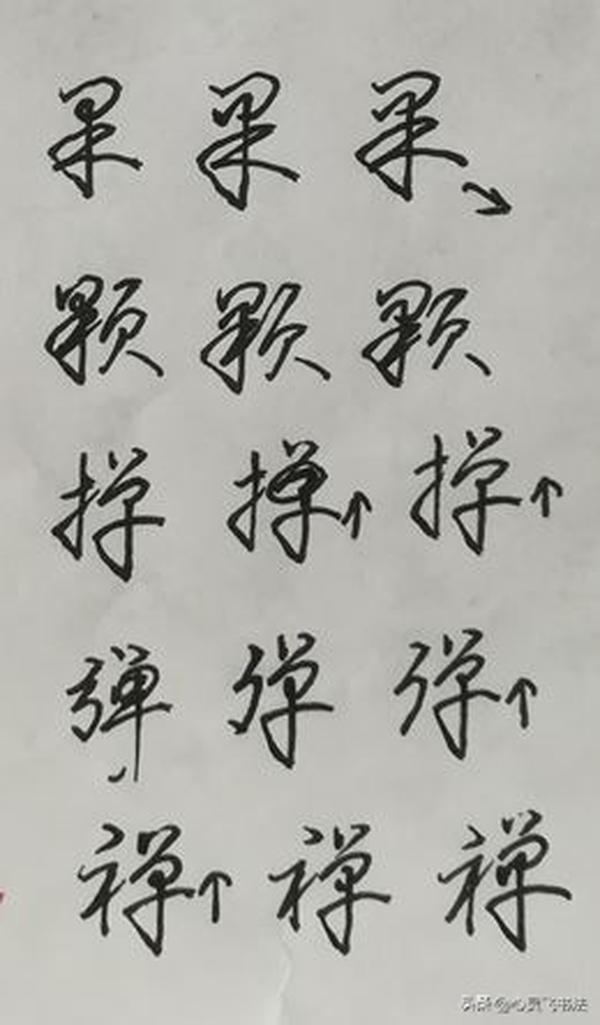 果 果 果
颗 颗 颗
掸 掸 掸
弹 弹 弹
禅 禅 禅
头条@心灵飞书法